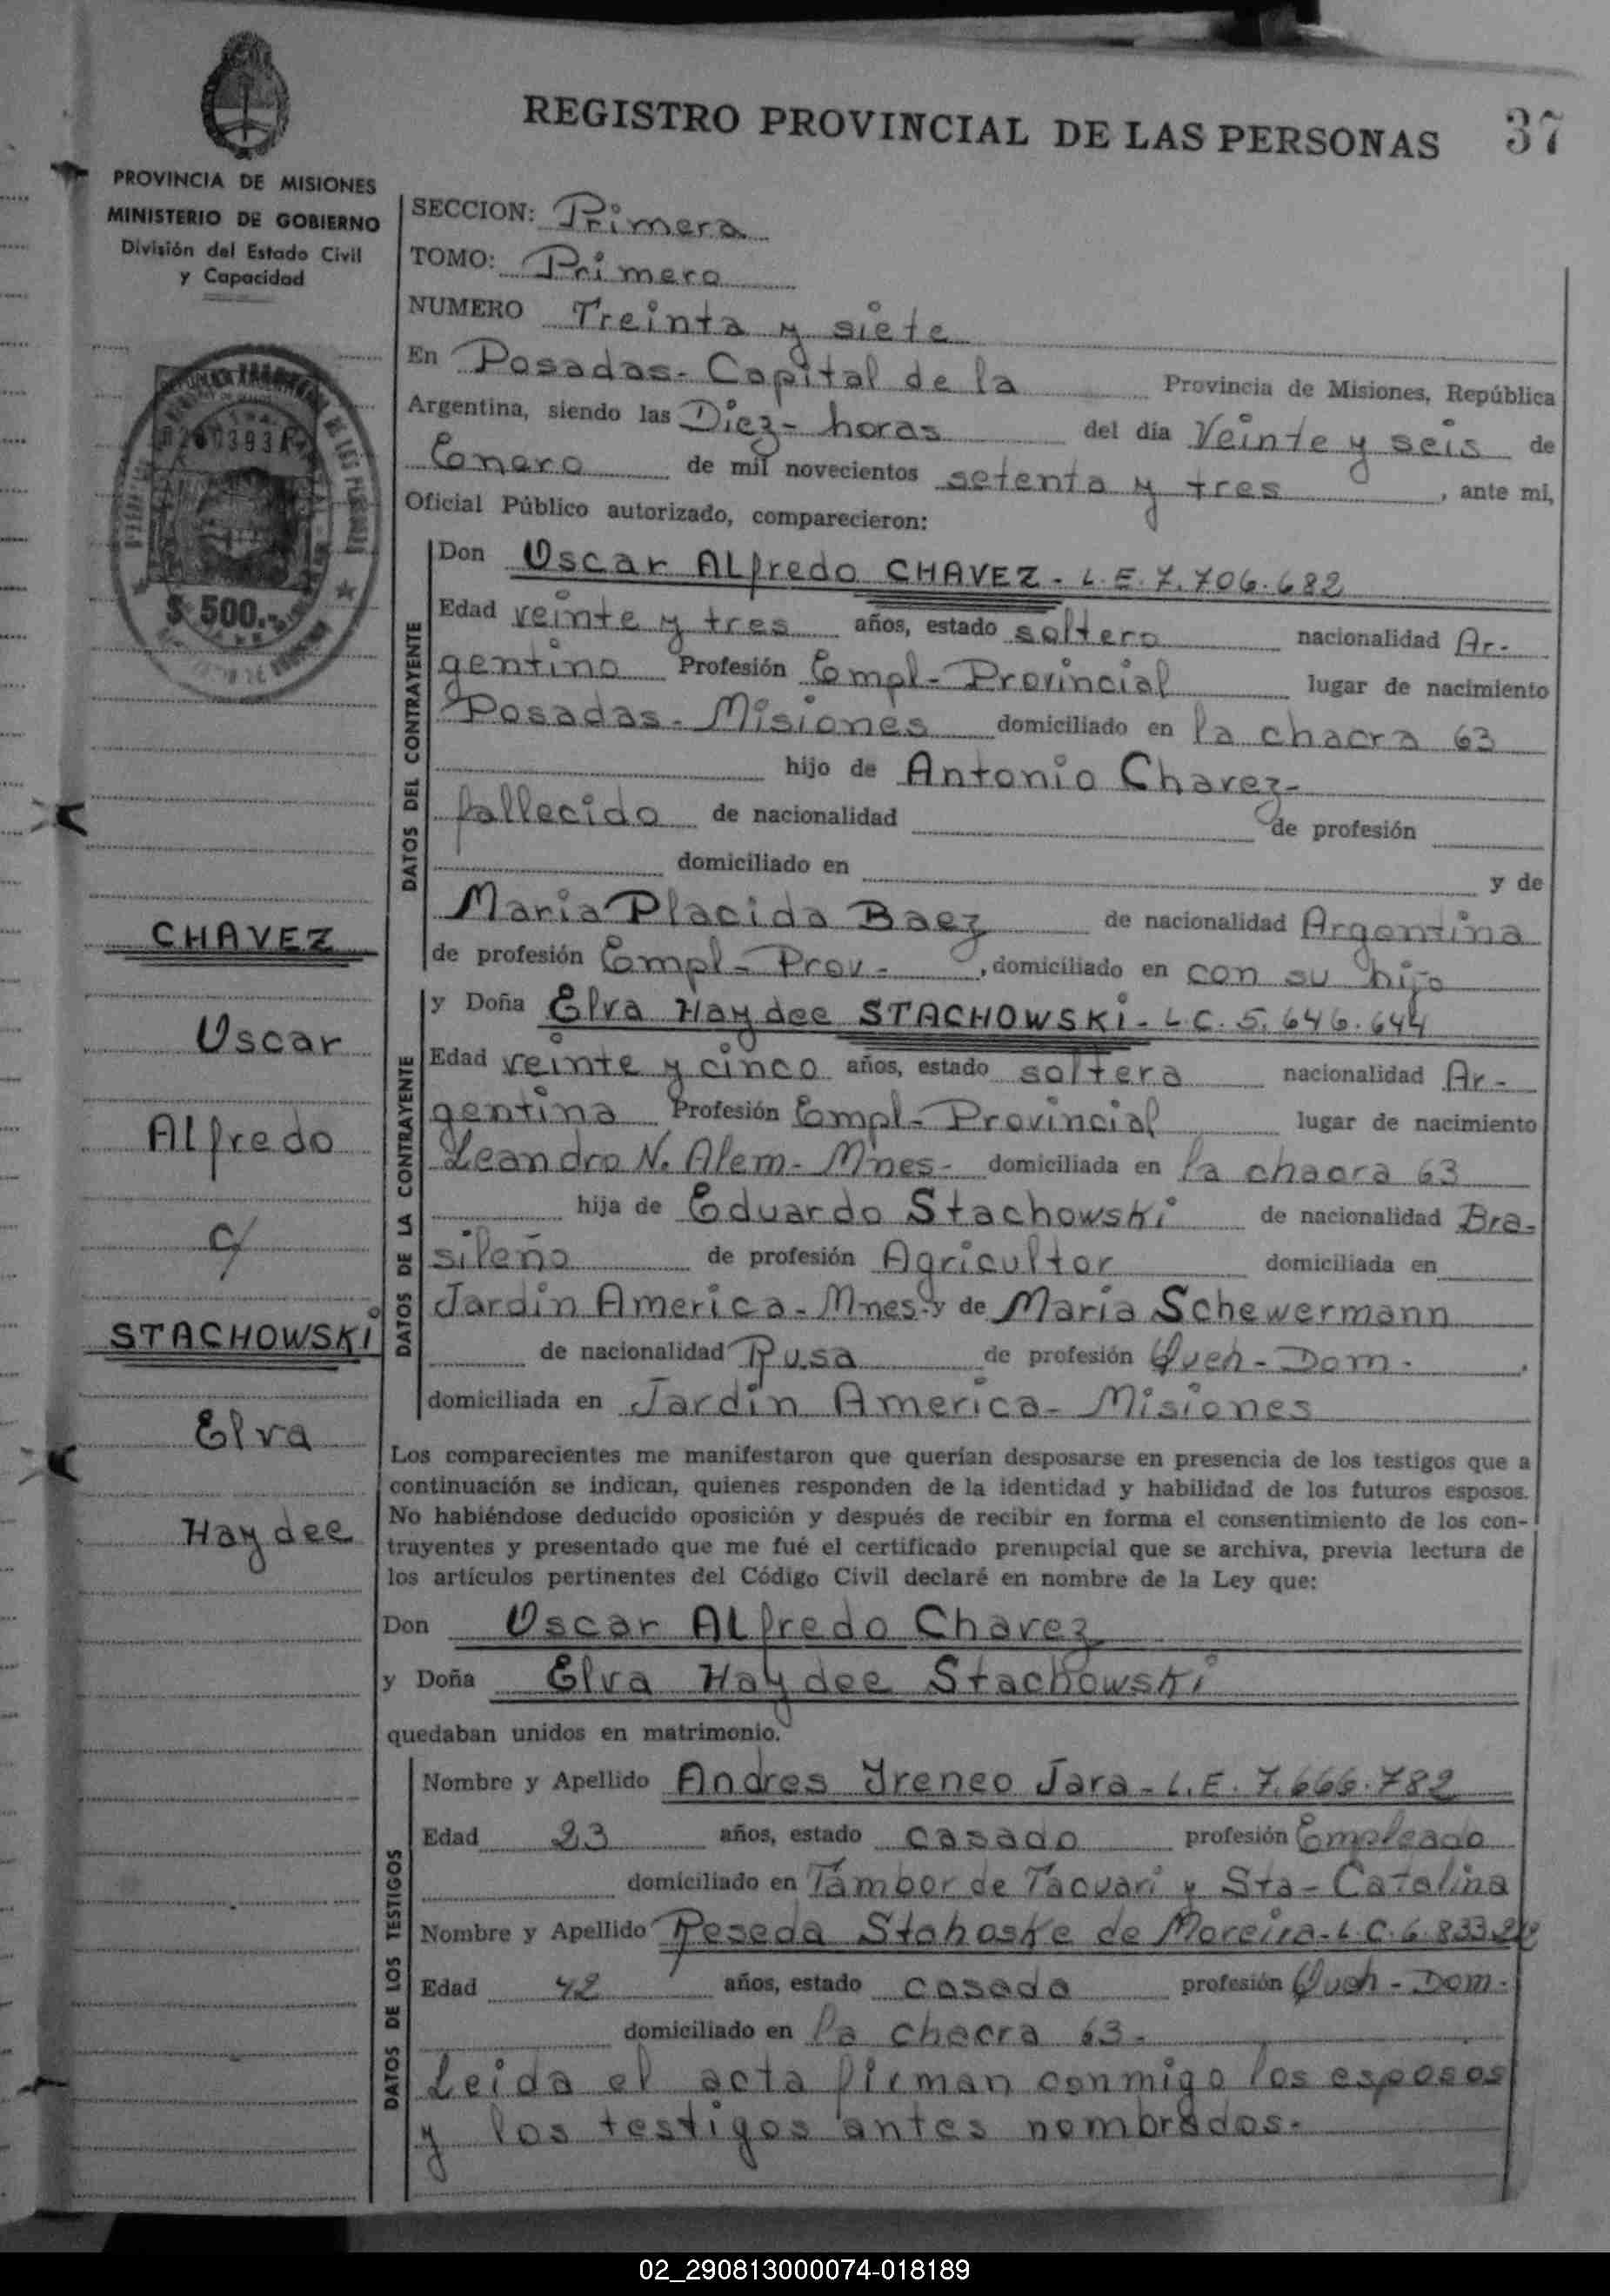 REGISTRO PROVINCIAL DE LAS PERSONAS 37
PROVINCIA DE MISIONES
MINISTERIO DE GOBIERNO
División del Estado Civil
y Capacidad
$ 500.-
CHAVEZ
Oscar
Alfredo
c/
STACHOWSKi
Elva
Haydee
SECCION: Primera
TOMO: Primero
NUMERO Treinta y siete
En Posadas- Capital de la Provincia de Misiones, República
Argentina, siendo las Diez- horas del día Veinte y seis de
Enero de mil novecientos setenta y tres, ante mí,
Oficial Público autorizado, comparecieron:
DATOS DEL CONTRAYENTE
Don Oscar Alfredo CHAVEZ- L.E. 7.706.682
Edad veinte y tres años, estado soltero nacionalidad Ar-
gentino Profesión Empl- Provincial lugar de nacimiento
Posadas- Misiones domiciliado en la chacra 63
hijo de Antonio Chavez-
fallecido de nacionalidad de profesión
domiciliado en y de
Maria Placida Baez de nacionalidad Argentina
de profesión Empl- Prov-, domiciliado en con su hijo
DATOS DE LA CONTRAYENTE
y Doña Elva Haydee STACHOWSKi- L.C. 5.646.644
Edad veinte y cinco años, estado soltera nacionalidad Ar-
gentina Profesión Empl- Provincial lugar de nacimiento
Leandro N. Alem- Mnes- domiciliada en la chacra 63
hija de Eduardo Stachowski de nacionalidad Bra-
sileño de profesión Agricultor domiciliada en
Jardin America- Mnes- y de Maria Schewermann
de nacionalidad Rusa de profesión Queh- Dom-.
domiciliada en Jardin America- Misiones
Los comparecientes me manifestaron que querían desposarse en presencia de los testigos que a
continuación se indican, quienes responden de la identidad y habilidad de los futuros esposos.
No habiéndose deducido oposición y después de recibir en forma el consentimiento de los con-
trayentes y presentado que me fué el certificado prenupcial que se archiva, previa lectura de
los artículos pertinentes del Código Civil declaré en nombre de la Ley que:
Don Oscar Alfredo Chavez
y Doña Elva Haydee Stachowski
quedaban unidos en matrimonio.
DATOS DE LOS TESTIGOS
Nombre y Apellido Andres Yreneo Jara- L.E. 7.666.782
Edad 23 años, estado casado profesión Empleado
domiciliado en Tambor de Tacuari y Sta- Catalina
Nombre y Apellido Reseda Stahoske de Moreira- L.C. 6.833.
Edad 42 años, estado casada profesión Queh- Dom-
domiciliado en la chacra 63-
Leida el acta firman conmigo los esposos
y los testigos antes nombrados-
02_290813000074-018189